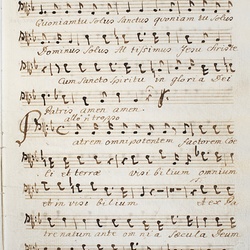 Quoniam tu Solus Sanctus quoniam tu Solus
Dominus Solus Altissimus Jesu Christe
Cum Sancto Spiritu in gloria Dei
Patris amen amen.
Patrem omnipotentem factorem Coe
li et terrae visi bilium omnium
et in visi bilium Et ex Pa
tre natum ante omnia Saecula Deum